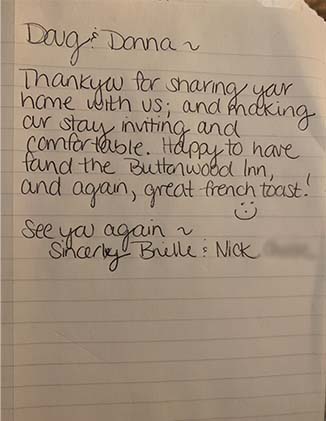 Doug & Donna ~
Thankyou for sharing your
home with us; and making
our stay inviting and
comfortable. Happy to have
found the Buttonwood Inn,
and again, great french toast!
See you again ~
Sincerely Brielle & Nick